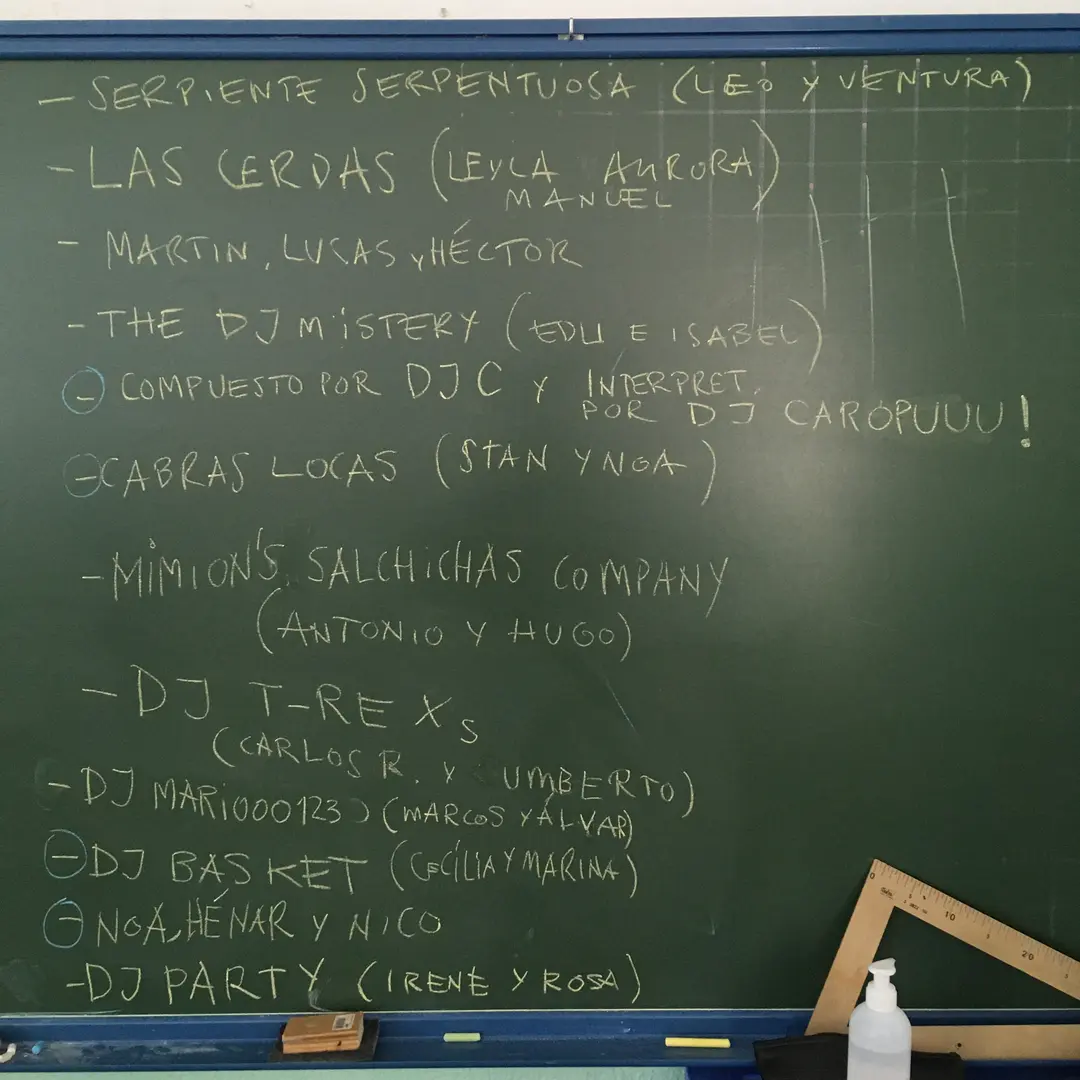 - SERPIENTE SERPENTUOSA (LEO Y VENTURA)
- LAS CERDAS (LEYLA AURORA)
MANUEL
- MARTIN, LUCAS Y HÉCTOR
- THE DJ MISTERY (EDU E ISABEL)
- COMPUESTO POR DJ C Y INTERPRET.
POR DJ CAROPUUU!
- CABRAS LOCAS (STAN Y NOA)
- MIMION'S SALCHICHAS COMPANY
(ANTONIO Y HUGO)
- DJ T-REXs
(CARLOS R. Y UMBERTO)
- DJ MARIOOO123 (MARCOS Y ÁLVAR)
- DJ BASKET (CECÍLIA Y MARINA)
- NOA, HÉNAR Y NICO
- DJ PARTY (IRENE Y ROSA)
0 10 20